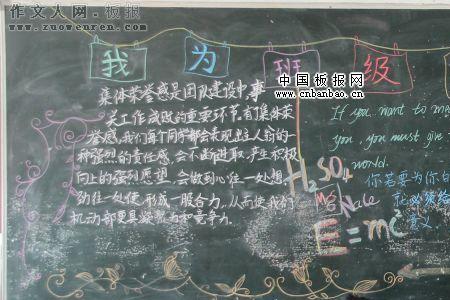 作文人网·板报
www.zuowenren.net
我为班级
中国板报网
www.cnbanbao.cn
集体荣誉感是团队建设中,事
关工作成败的重要环节.有集体荣
誉感,我们每个同学都会表现出主人翁的一
种强烈的责任感,会不断进取,产生积极
向上的强烈愿望,会做到心往一处想,
劲往一处使,形成一股合力,从而使我们
机动部更具凝聚力和竞争力.
If you want to ma
you, you must give
world.
H2SO4
Mg
E=mc²
你若要为你的
就必须给
意义